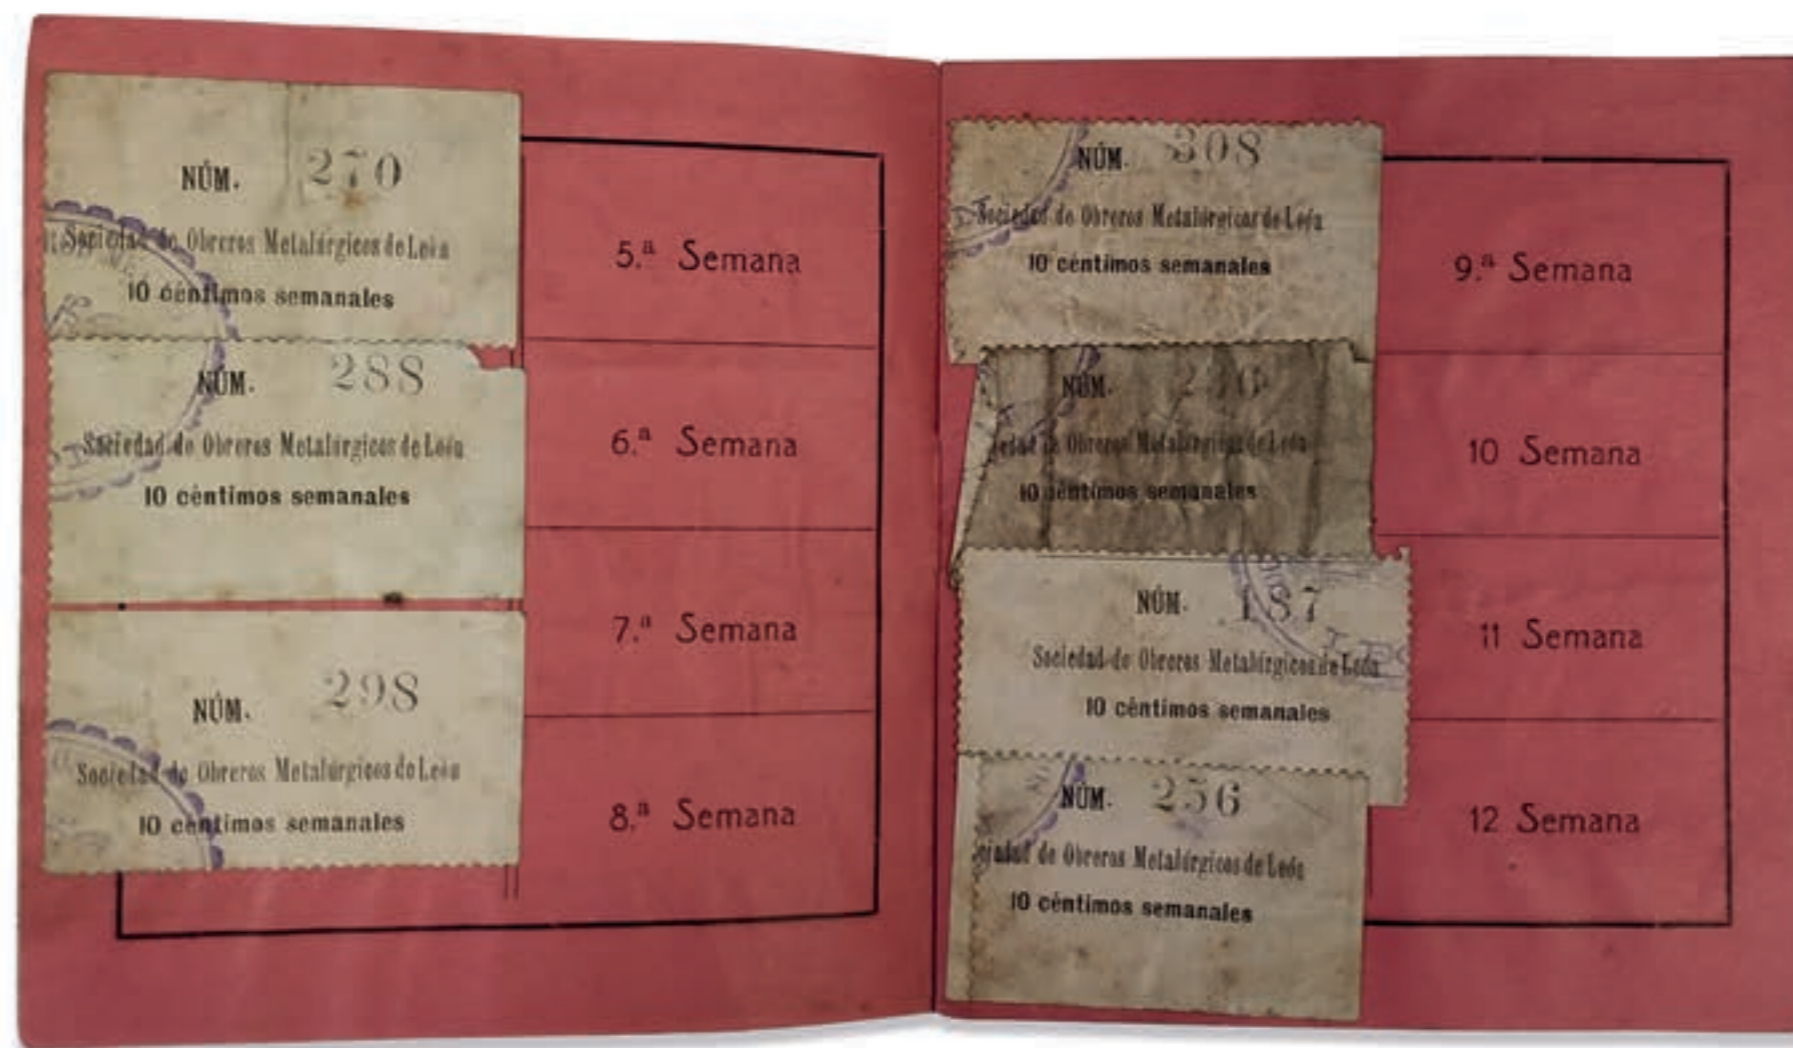 NÚM. 270
Sociedad de Obreros Metalúrgicos de León
10 céntimos semanales
NÚM. 288
Sociedad de Obreros Metalúrgicos de León
10 céntimos semanales
NÚM. 298
Sociedad de Obreros Metalúrgicos de León
10 céntimos semanales
5.ª Semana
6.ª Semana
7.ª Semana
8.ª Semana
NÚM. 308
Sociedad de Obreros Metalúrgicos de León
10 céntimos semanales
NÚM.
de Obreros Metalúrgicos de León
10 céntimos semanales
NÚM. 187
Sociedad de Obreros Metalúrgicos de León
10 céntimos semanales
NÚM. 256
de Obreros Metalúrgicos de León
10 céntimos semanales
9.ª Semana
10 Semana
11 Semana
12 Semana